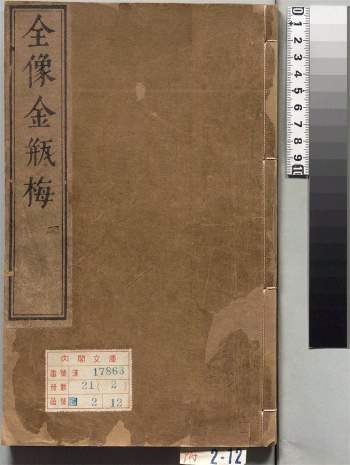 全像金瓶梅
一
内閣文庫
番號 漢 17863
冊數 21( 2 )
函號 2 12
2-12
0 1 2 3 4 5 6 7 8 9 10